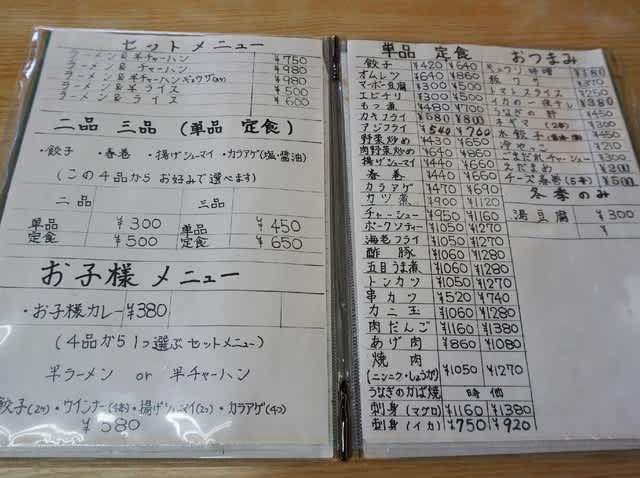 セットメニュー
ラーメン&半チャーハン ¥750
ラーメン&チャーハン ¥980
ラーメン&半チャーハン ¥980
ラーメン&半ライス ¥500
ラーメン&ライス ¥600
二品 三品 (単品 定食)
・餃子 ・春巻 ・揚げシューマイ ・カラアゲ(塩・醤油)
(この4品から お好みで選べます)
二品 三品
単品 ¥300 単品 ¥450
定食 ¥500 定食 ¥650
お子様メニュー
・お子様カレー ¥380
(4品から1つ選ぶセットメニュー)
半ラーメン or 半チャーハン
餃子(2ケ)・ウインナー(3本)・揚げシューマイ(2ケ)・カラアゲ(4ケ)
¥580
単品 定食
餃子 ¥420 ¥640
オムレツ ¥640 ¥860
マーボー豆腐 ¥300 ¥500
エビチリ ¥300 ¥500
もつ煮 ¥480 ¥700
カキフライ ¥580 ¥800
アジフライ ¥540 ¥760
野菜炒め ¥430 ¥650
肉野菜炒め ¥640 ¥860
揚げシューマイ ¥440 ¥660
春巻 ¥440 ¥660
カラアゲ ¥470 ¥690
カツ煮 ¥900 ¥1120
チャーシュー ¥950 ¥1160
ポークソテー ¥1050 ¥1270
海老フライ ¥1050 ¥1270
酢豚 ¥1060 ¥1280
五目うま煮 ¥1060 ¥1280
トンカツ ¥1050 ¥1270
串カツ ¥520 ¥740
カニ玉 ¥1060 ¥1280
肉だんご ¥1160 ¥1380
あげ肉 ¥860 ¥1080
焼肉
(ニンニク・しょうが) ¥1050 ¥1270
うなぎのかば焼 時価
刺身(マグロ) ¥1160 ¥1380
刺身(イカ) ¥750 ¥920
おつまみ
¥180
トマトスライス ¥250
イカの一夜干し ¥380
うなぎの肝 ¥450
水餃子
冷やっこ
ごまだれチャーシュー ¥300
なだまめ ¥200
チーズ春巻(5本) ¥500
冬季のみ
湯豆腐 ¥300
¥